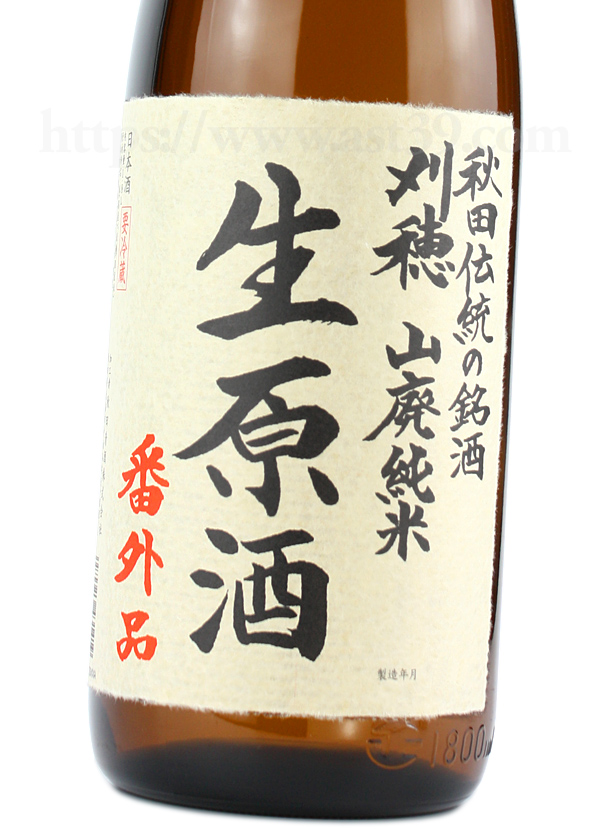 秋田伝統の銘酒
刈穂 山廃純米
生原酒
番外品
日本酒
要冷蔵
製造年月
1800
https://www.ast39.com